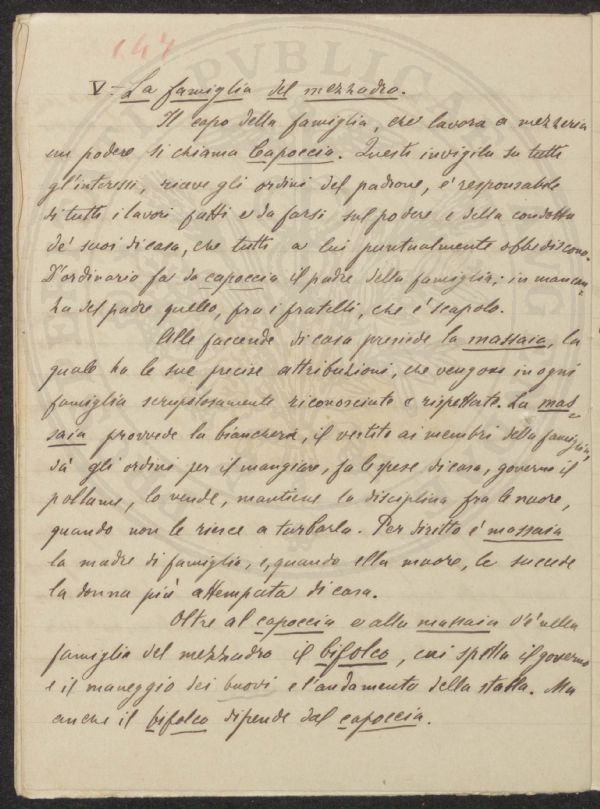 147
V - La famiglia del mezzadro.
Il capo della famiglia, che lavora a mezzeria
un podere si chiama Capoccia. Questi invigila su tutti
gl'interessi, riceve gli ordini del padrone, è responsabile
di tutti i lavori fatti e da farsi sul podere e della condotta
de' suoi di casa, che tutti a lui puntualmente obbediscono.
D'ordinario fa da capoccia il padre della famiglia; in mancan-
za del padre quello, fra i fratelli, che è scapolo.
Alle faccende di casa presiede la massaia, la
quale ha le sue precise attribuzioni, che vengono in ogni
famiglia scrupolosamente riconosciute e rispettate. La mas-
saia provvede la biancheria, il vestito ai membri della famiglia,
dà gli ordini per il mangiare, fa le spese di casa, governa il
pollame, lo vende, mantiene la disciplina fra le nuore,
quando non le riesce a turbarla. Per diritto è massaia
la madre di famiglia, e, quando ella muore, le succede
la donna più attempata di casa.
Oltre al capoccia e alla massaia v'è nella
famiglia del mezzadro il bifolco, cui spetta il governo
e il maneggio dei buovi e l'andamento della stalla. Ma
anche il bifolco dipende dal capoccia.